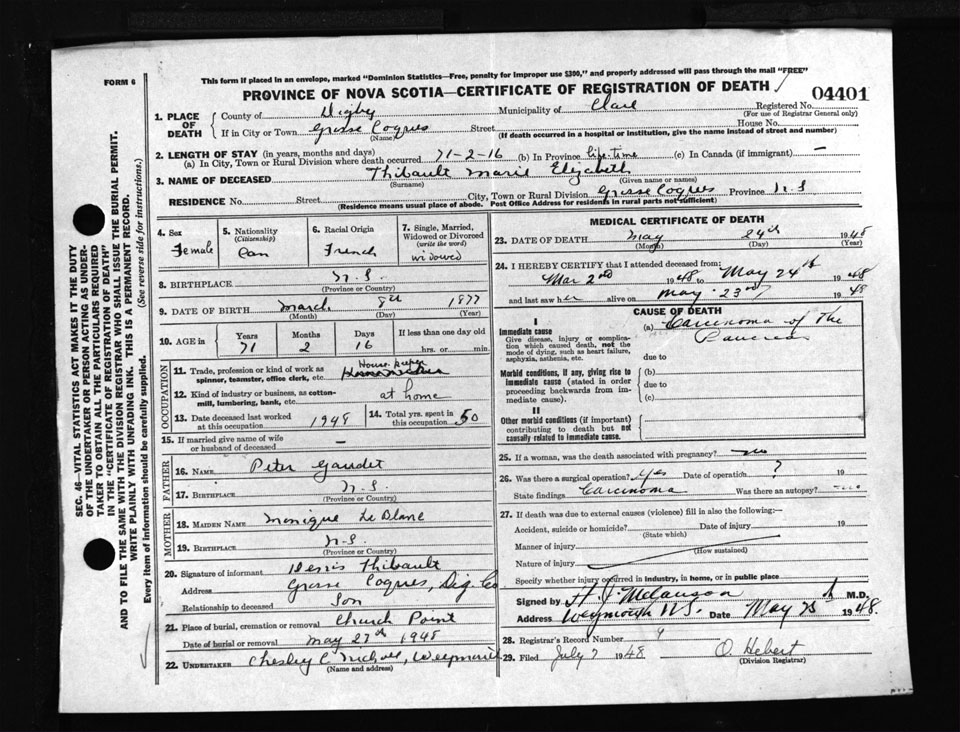 FORM 6
This form if placed in an envelope, marked "Dominion Statistics—Free, penalty for improper use $300," and properly addressed will pass through the mail "FREE"
PROVINCE OF NOVA SCOTIA—CERTIFICATE OF REGISTRATION OF DEATH
04401
1. PLACE OF DEATH
County of Digby Municipality of Clare Registered No.
(For use of Registrar General only)
If in City or Town Grosse Coques Street House No.
(Name) (If death occurred in a hospital or institution, give the name instead of street and number)
2. LENGTH OF STAY (in years, months and days)
(a) In City, Town or Rural Division where death occurred 71-2-16 (b) In Province life-time (c) In Canada (if immigrant) —
3. NAME OF DECEASED Thibault Marie Elizabeth
(Surname) (Given name or names)
RESIDENCE No. Street City, Town or Rural Division Grosse Coques Province N.S
(Residence means usual place of abode. Post Office Address for residents in rural parts not sufficient)
4. Sex Female
5. Nationality (Citizenship) Can
6. Racial Origin French
7. Single, Married, Widowed or Divorced (write the word) widowed
8. BIRTHPLACE N.S.
(Province or Country)
9. DATE OF BIRTH March 8th 1877
(Month) (Day) (Year)
10. AGE in Years 71 Months 2 Days 16 If less than one day old hrs. or min.
OCCUPATION
11. Trade, profession or kind of work as spinner, teamster, office clerk, etc. House keeper
12. Kind of industry or business, as cotton-mill, lumbering, bank, etc. at home
13. Date deceased last worked at this occupation 1948
14. Total yrs. spent in this occupation 50
15. If married give name of wife or husband of deceased —
FATHER
16. NAME Peter Gaudet
17. BIRTHPLACE N.S.
(Province or Country)
MOTHER
18. MAIDEN NAME Monique Le Blanc
19. BIRTHPLACE N.S.
(Province or Country)
20. Signature of informant Denis Thibault
Address Grosse Coques, Dig. Co
Relationship to deceased Son
21. Place of burial, cremation or removal Church Point
Date of burial or removal May 27th 1948
22. UNDERTAKER Chesley C Nicholl, Weymouth
(Name and address)
MEDICAL CERTIFICATE OF DEATH
23. DATE OF DEATH May 24th 1948
(Month) (Day) (Year)
24. I HEREBY CERTIFY that I attended deceased from:
Mar 2nd 1948 to May 24th 1948
and last saw her alive on May 23rd 1948
CAUSE OF DEATH
I
Immediate cause
Give disease, injury or complication which caused death, not the mode of dying, such as heart failure, asphyxia, asthenia, etc.
(a) Carcinoma of the Pancreas
due to
Morbid conditions, if any, giving rise to immediate cause (stated in order proceeding backwards from immediate cause).
(b)
due to
(c)
II
Other morbid conditions (if important) contributing to death but not causally related to immediate cause.
25. If a woman, was the death associated with pregnancy? no
26. Was there a surgical operation? Yes Date of operation ? 19
State findings Carcinoma Was there an autopsy? no
27. If death was due to external causes (violence) fill in also the following:—
Accident, suicide or homicide? Date of injury 19
(State which)
Manner of injury
(How sustained)
Nature of injury
Specify whether injury occurred in industry, in home, or in public place
Signed by H. J. Melanson M.D.
Address Weymouth N.S. Date May 25th 1948.
28. Registrar's Record Number 4
29. Filed July 7 1948 O. Hebert
(Division Registrar)
SEC. 46—VITAL STATISTICS ACT MAKES IT THE DUTY
OF THE UNDERTAKER OR PERSON ACTING AS UNDER-
TAKER TO OBTAIN ALL THE PARTICULARS REQUIRED
IN THE "CERTIFICATE OF REGISTRATION OF DEATH"
AND TO FILE THE SAME WITH THE DIVISION REGISTRAR WHO SHALL ISSUE THE BURIAL PERMIT.
WRITE PLAINLY WITH UNFADING INK. THIS IS A PERMANENT RECORD.
Every item of information should be carefully supplied. (See reverse side for instructions.)